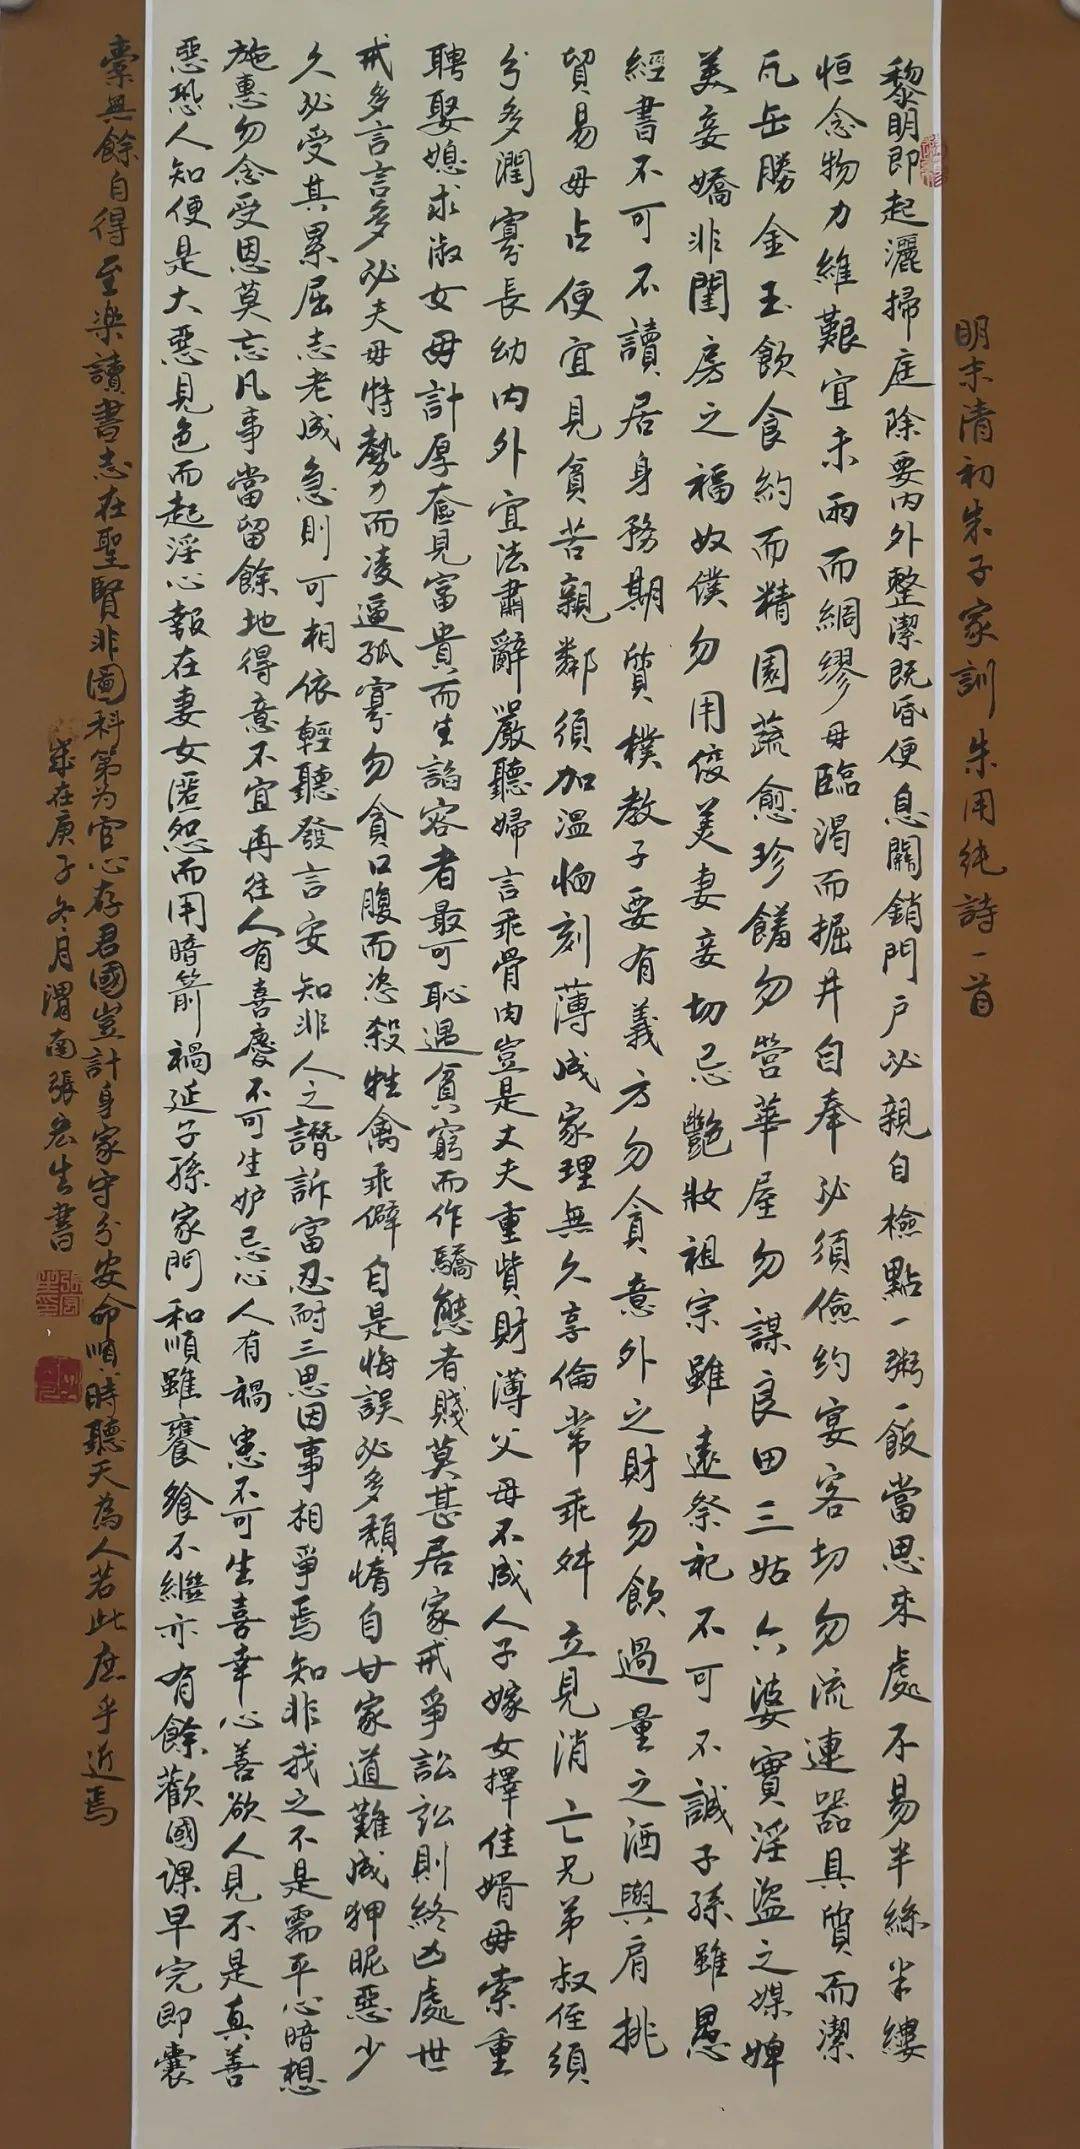 明末清初朱子家訓 朱用純詩一首
黎明即起灑掃庭除要內外整潔既昏便息關鎖門戶必親自檢點一粥一飯當思來處不易半絲米縷
恒念物力維艱宜未雨而綢繆毋臨渴而掘井自奉必須儉約宴客切勿流連器具質而潔
瓦缶勝金玉飲食約而精園蔬愈珍饈勿營華屋勿謀良田三姑六婆實淫盜之媒婢
美妾嬌非閨房之福奴僕勿用俊美妻妾切忌艷妝祖宗雖遠祭祀不可不誠子孫雖愚
經書不可不讀居身務期質樸教子要有義方勿貪意外之財勿飲過量之酒與肩挑
貿易毋占便宜見貧苦親鄰須加溫恤刻薄成家理無久享倫常乖舛立見消亡兄弟叔侄須
分多潤寡長幼內外宜法肅辭嚴聽婦言乖骨肉豈是丈夫重貲財薄父母不成人子嫁女擇佳婿毋索重
聘娶媳求淑女毋計厚奩見富貴而生諂容者最可恥遇貧窮而作驕態者賤莫甚居家戒爭訟訟則終凶處世
戒多言言多必夫毋恃勢力而凌逼孤寡勿貪口腹而恣殺牲禽乖僻自是悔誤必多頹惰自甘家道難成狎昵惡少
久必受其累屈志老成急則可相依輕聽發言安知非人之譖訴當忍耐三思因事相爭焉知非我之不是需平心暗想
施惠勿念受恩莫忘凡事當留餘地得意不宜再往人有喜慶不可生妒忌心人有禍患不可生喜幸心善欲人見不是真善
惡恐人知便是大惡見色而起淫心報在妻女匿怨而用暗箭禍延子孫家門和順雖饔飧不繼亦有餘歡國課早完即囊
橐無餘自得至樂讀書志在聖賢非圖科第為官心存君國豈計身家守分安命順時聽天為人若此庶乎近焉
歲在庚子冬月渭南張宏生書